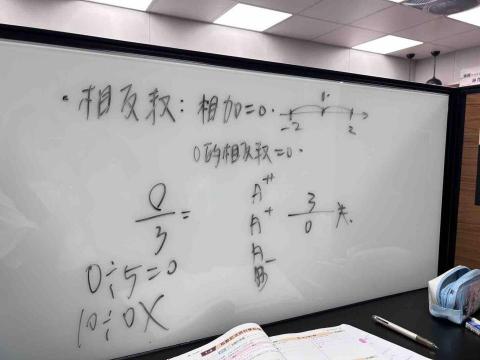 ·相反数：相加=0.
-2 0 2
0的相反数=0.
0/3=
A++
A+
A
A-
B
3/0 ×.
0÷5=0
10÷0X